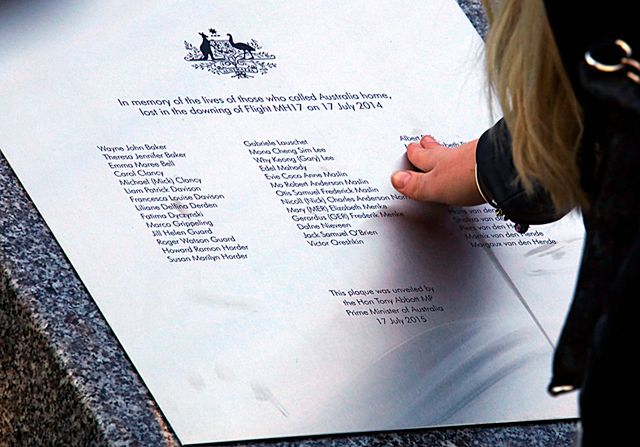 In memory of the lives of those who called Australia home,
lost in the downing of Flight MH17 on 17 July 2014
Wayne John Baker
Theresa Jennifer Baker
Emma Maree Bell
Carol Clancy
Michael (Mick) Clancy
Liam Patrick Davison
Francesca Louise Davison
Liliane Derden
Fatima Dyczynski
Marco Grippeling
Jill Helen Guard
Roger Watson Guard
Howard Ramon Horder
Susan Marilyn Horder
Gabriele Lauschet
Mona Cheng Sim Lee
Why Keong (Gary) Lee
Edel Mahady
Evie Coco Anne Maslin
Mo Robert Anderson Maslin
Otis Samuel Frederick Maslin
Nicoll (Nick) Charles Anderson
Mary (MER) Elizabeth Menke
Gerardus (GER) Frederik Menke
Dafne Nieveen
Jack Samuel O'Brien
Victor Oreshkin
Albert
van den
Shaliza van
Piers van den Hende
Marnix van den Hende
Margaux van den Hende
This plaque was unveiled by
the Hon Tony Abbott MP
Prime Minister of Australia
17 July 2015